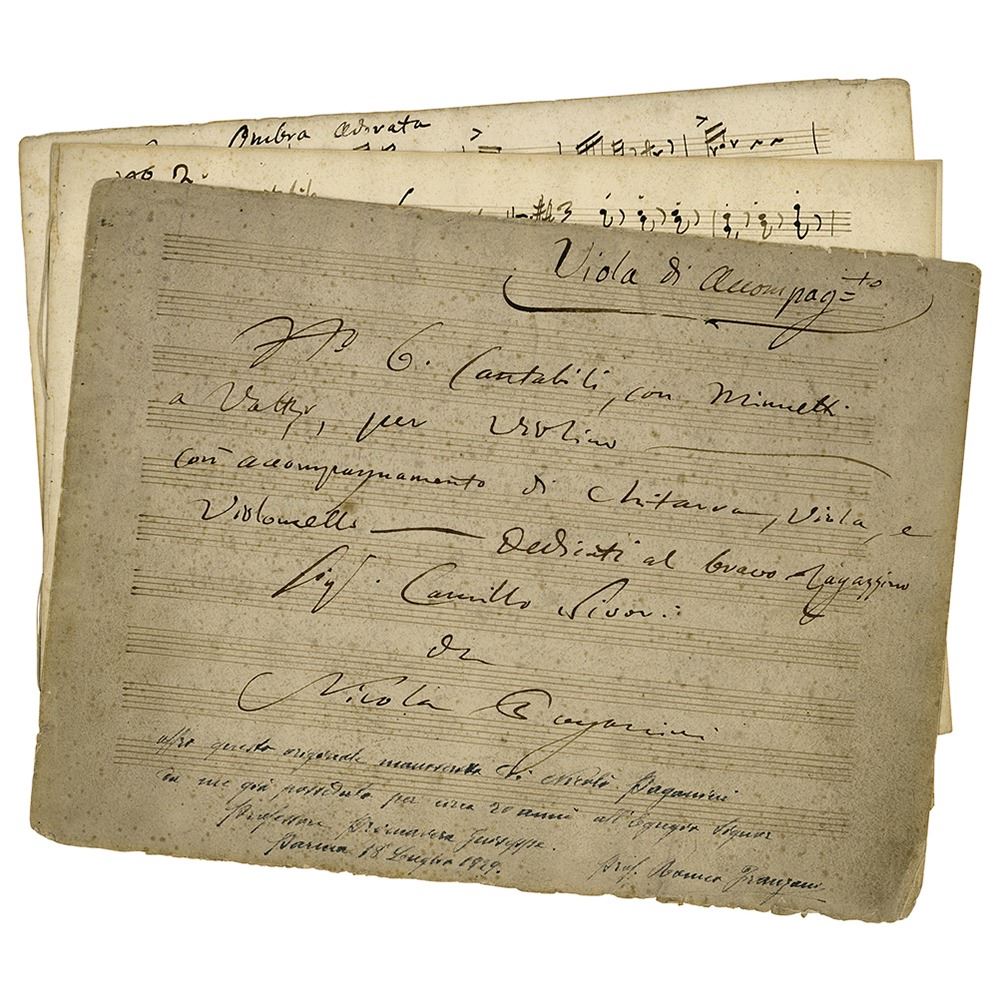 Ombra adorata
2.
Viola di accompag=to
N° 6. Cantabili, con Minuetti
a Valtzr, per Violino
con accompagnamento di chitarra, Viola, e
Violoncello Dedicati al bravo Ragazzino
Sigr. Camillo Sivori
da
Nicolò Paganini
offro questo originale manoscritto di Nicolò Paganini
da me già posseduto per circa 20 anni all'Egregio Signor
Professore Primavera Giuseppe.
Parma 18 Luglio 1929.
Prof. Romeo Franzoni